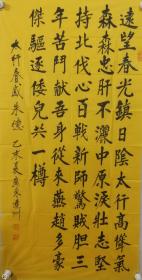 遠望春光鎮日陰太行高聳氣
森森忠肝不灑中原淚壯志堅
持北伐心百戰新師驚賊膽三
年苦鬥献吾身從來燕趙多豪
傑驅逐倭兒共一樽
太行春感 朱德 乙未夏